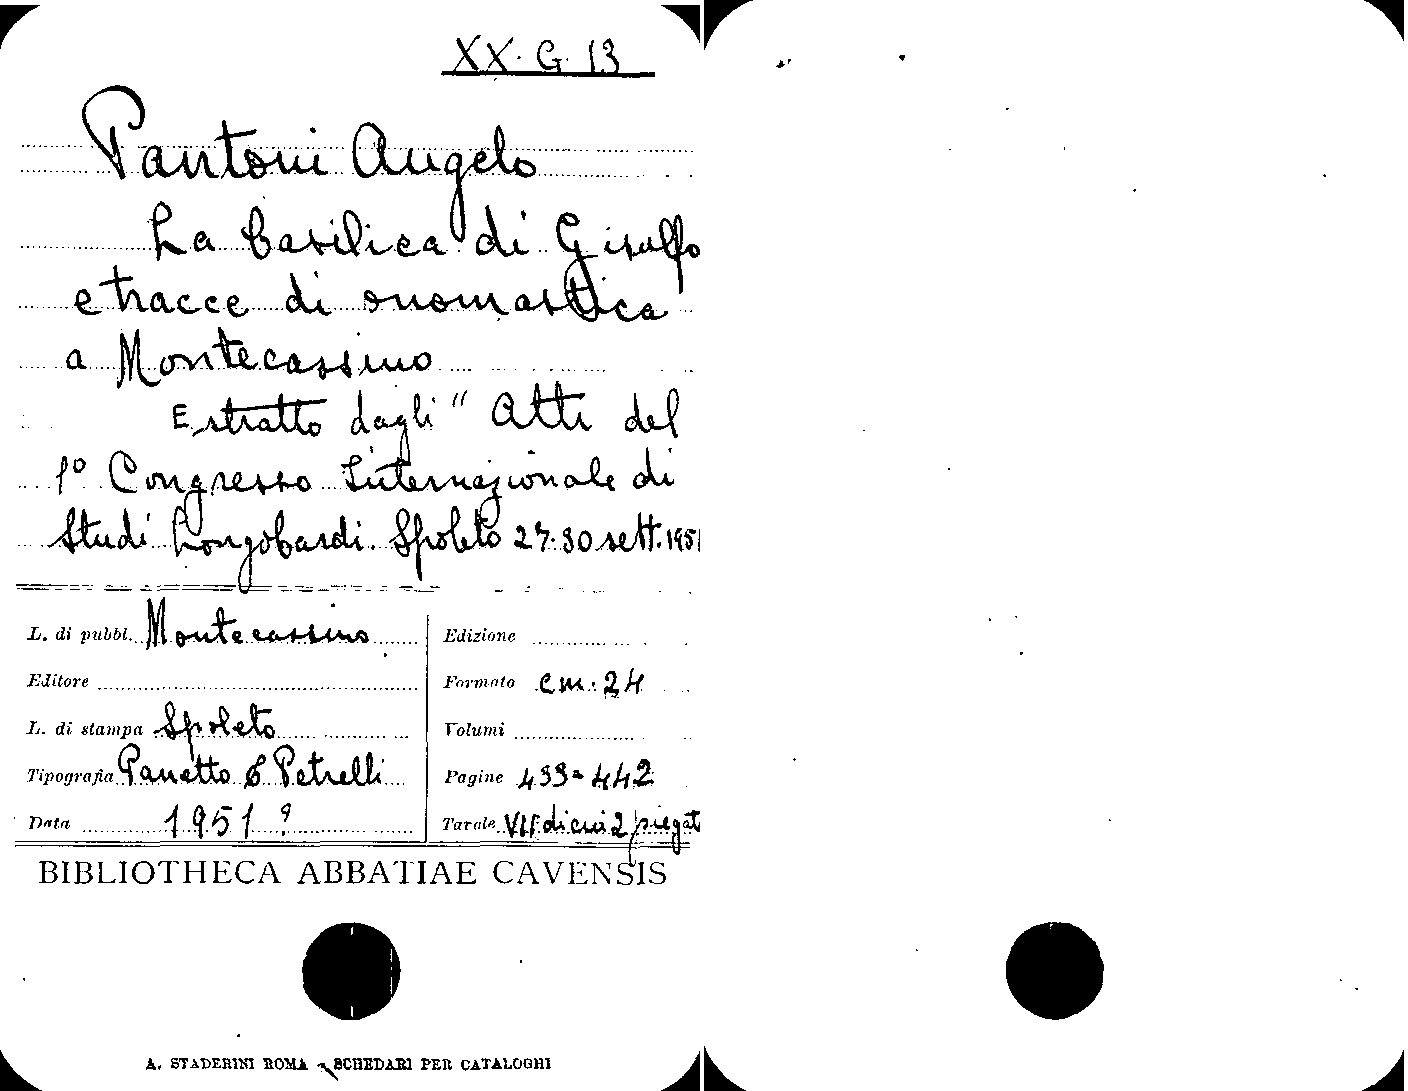 XX. G. 13
Pantoni Angelo
La basilica di Gisulfo
e tracce di onomastica
a Montecassino
Estratto dagli "Atti del
1º Congresso Internazionale di
Studi Longobardi. Spoleto 27-30 sett. 1951
L. di pubbl. Montecassino
Editore
L. di stampa Spoleto
Tipografia Panetto & Petrelli
Data 1951?
Edizione
Formato cm. 24
Volumi
Pagine 433-442
Tavole VII di cui 2 piegat
BIBLIOTHECA ABBATIAE CAVENSIS
A. STADERINI ROMA - SCHEDARI PER CATALOGHI